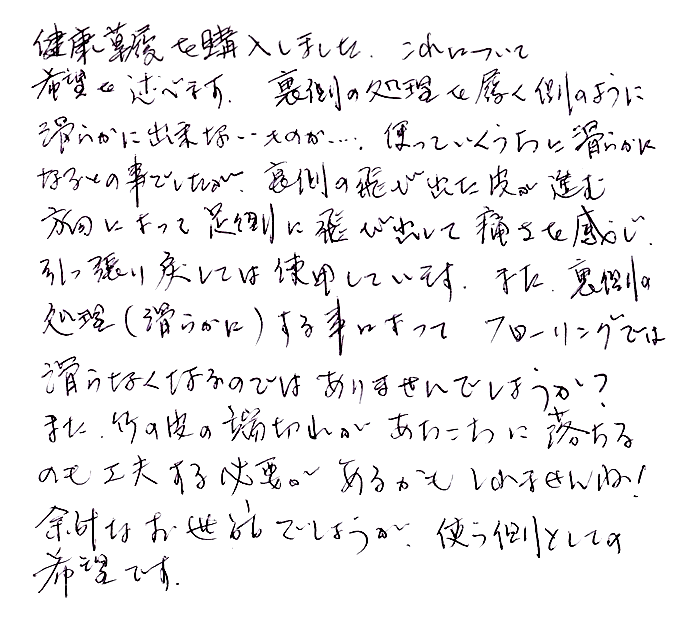 健康草履を購入しました。これについて
希望を述べます。裏側の処理を履く側のように
滑らかに出来ないものか…。使っていくうちに滑らかに
なるとの事でしたが、裏側の飛び出た皮が進む
方向によって足側に飛び出して痛さを感じ、
引っ張り戻しては使用しています。また、裏側の
処理(滑らかに)する事によって フローリングでは
滑らなくなるのではありませんでしょうか?
また、竹の皮の端切れが あちこちに落ちる
のも工夫する必要があるかもしれませんね!
余計なお世話でしょうが、使う側としての
希望です。